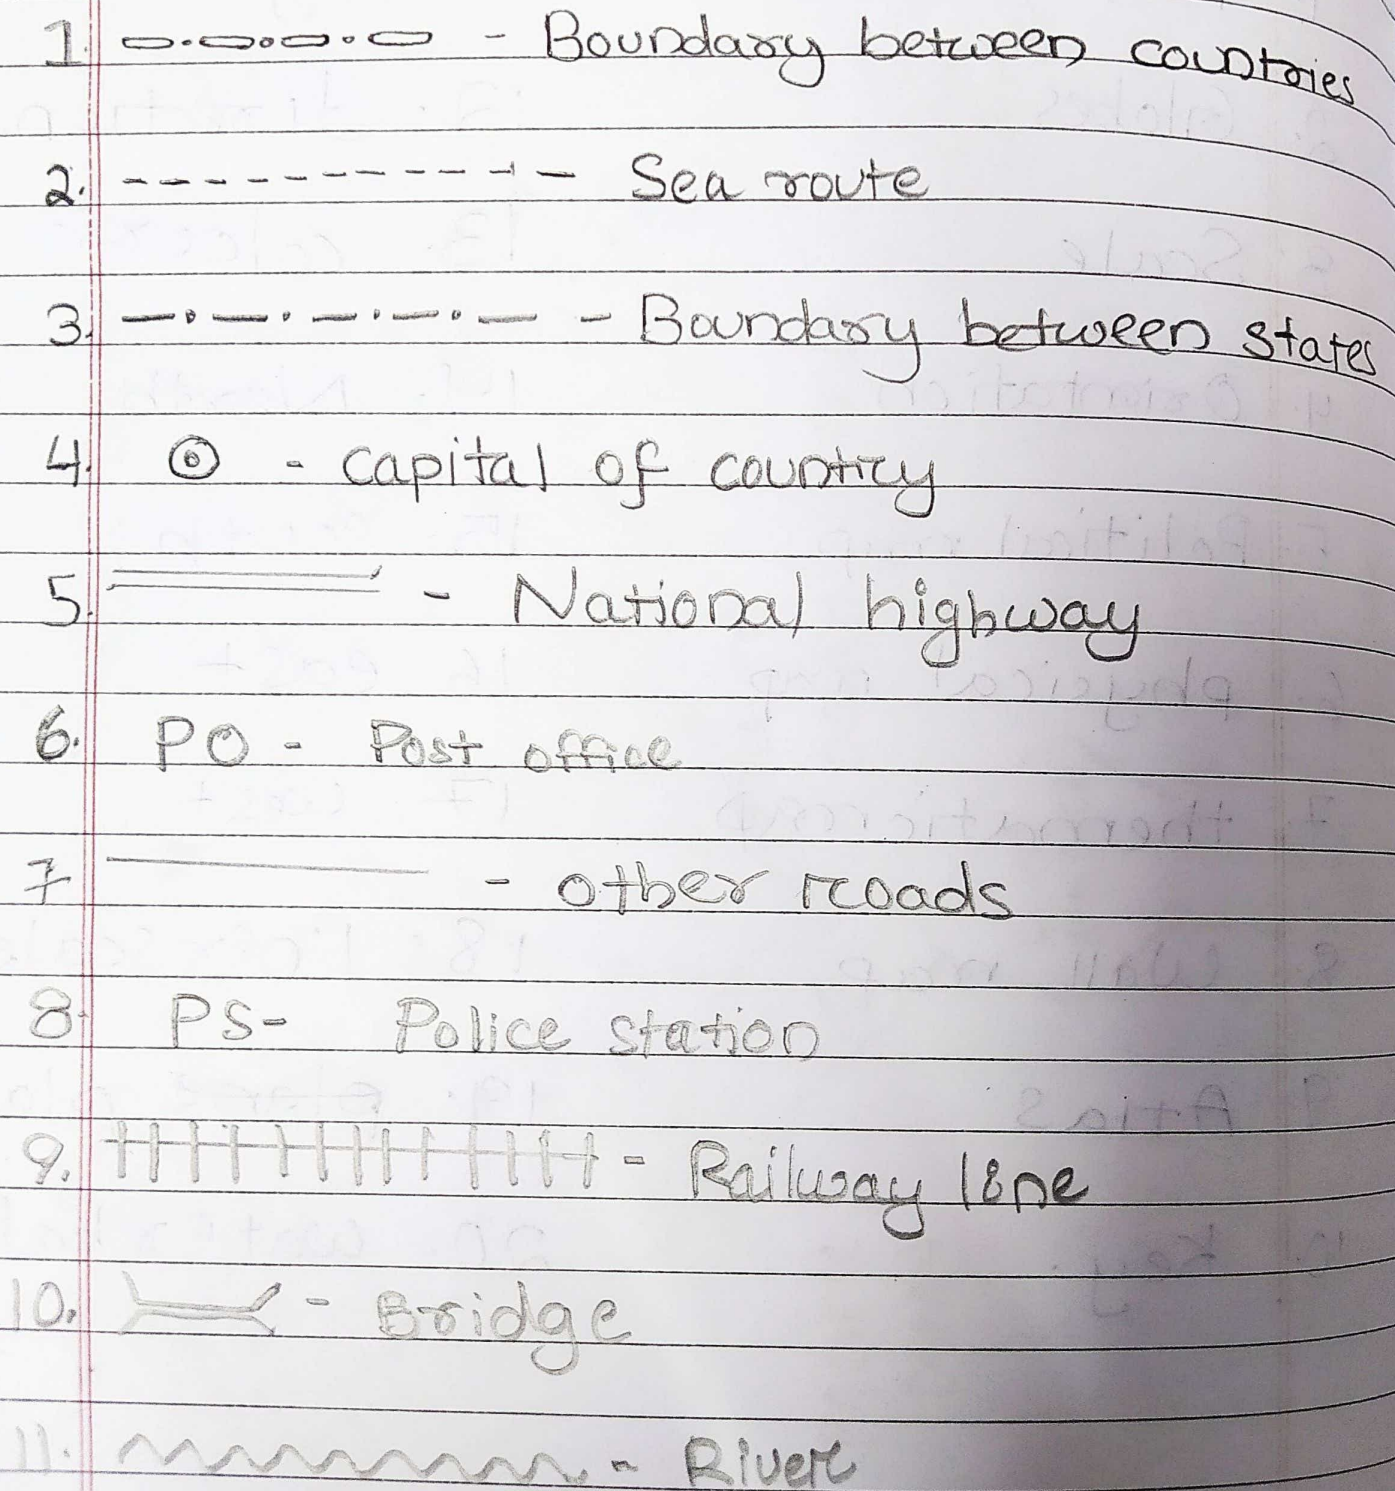 1. - Boundary between countries
2. - Sea route
3. - Boundary between states
4. - capital of country
5. - National highway
6. PO - Post office
7 - other roads
8. PS- Police station
9. - Railway line
10. - Bridge
11. - River